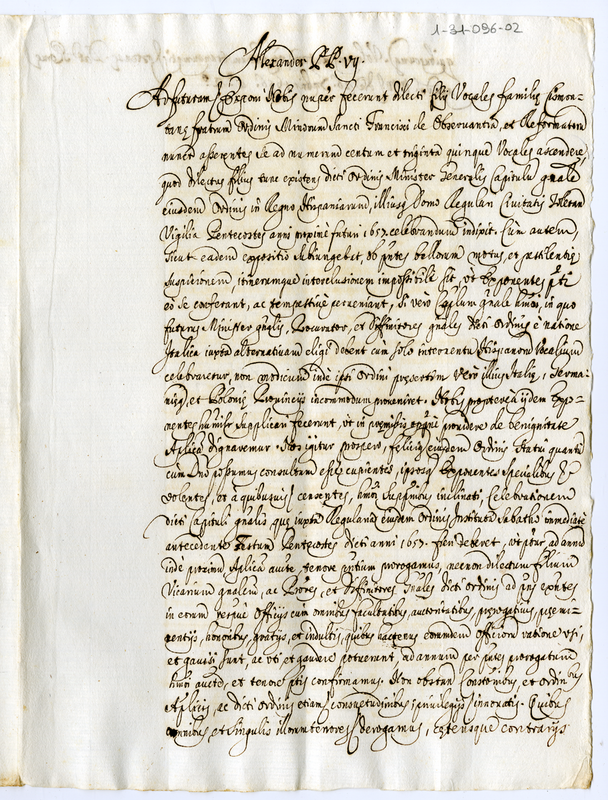 1-31-096-02
Alexander PP. VII.
Ad futuram / Exponi Nobis nuper fecerunt dilecti filij Vocales familiæ Cismon-
tanæ fratrum Ordinis Minorum Sancti Francisci de Observantia, et Reformatorum
nuncupatorum asserentes se ad numerum centum et triginta quinque Vocales ascendere
quod dilectus filius tunc existens dicti Ordinis Minister Generalis Capitulum gnale
eiusdem Ordinis in Regno Hispaniarum, illiusque Domo Regulari Civitatis Toletan
Vigilia Pentecostes anni proximè futuri 1657. celebrandum indixit. Cum autem,
sicut eadem expositio subiungebat, ob pntes bellorum motus, et pestilentiæ
suspicionem, itinerumque interclusionem impossibile sit, ut Exponentes pti
eo se conferant, ac tempestivè perveniant, si vero Caplum gnale hmoi, in quo
futurus Minister gnalis, Procurator, et Diffinitores gnales dicti Ordinis è natione
Italica iuxta alternativam eligi debent cum solo interventu Hispanorum Vocalium
celebraretur, non modicum inde ipsi Ordini præsertim vero illius Italiæ, Germa-
niæ, et Poloniæ Provincijs incommodum proveniret. Nobis propterea ijdem Expo-
nentes humilr supplicari fecerunt, ut in præmissis opportune providere de benignitate
Aplica dignaremur. Nos igitur prospero, felicique eiusdem Ordinis statui quantum
cum Dno possumus consultum esse cupientes, ipsosque Exponentes specialibus &
volentes, et à quibusvis / censentes, hmoi supplnibus inclinati, celebrationem
dicti Capituli gnalis, quæ iuxta Regularia eiusdem Ordinis Instituta Sabatho immediatè
antecedente Festum Pentecostes dicti anni 1657. fieri deberet, ut pfertur, ad annum
inde proximum Aplica aucte tenore pntium prorogamus, necnon dilectum filium
Vicarium gnalem, ac Pròres, et Diffinitores gnales dicti Ordinis ad pns exntes
in eorum respue Officijs cum omnibus facultatibus, auctoritatibus, prærogativis, præmi-
nentijs, honoribus, gratijs, et indultis, quibus hactenus eorumdem Officiorum ratione usi,
et gavisi sunt, ac uti et gaudere potuerunt, ad annum per pntes prorogatum
hmoi aucte, et tenore ptis confirmamus. Non obstan Constonibus, et Ordinbus
Aplicis, ac dicti Ordinis etiam / consuetudinibus / privilegijs / innovatis. Quibus
omnibus, et singulis illorum tenores / derogamus, cæterisque contrarijs